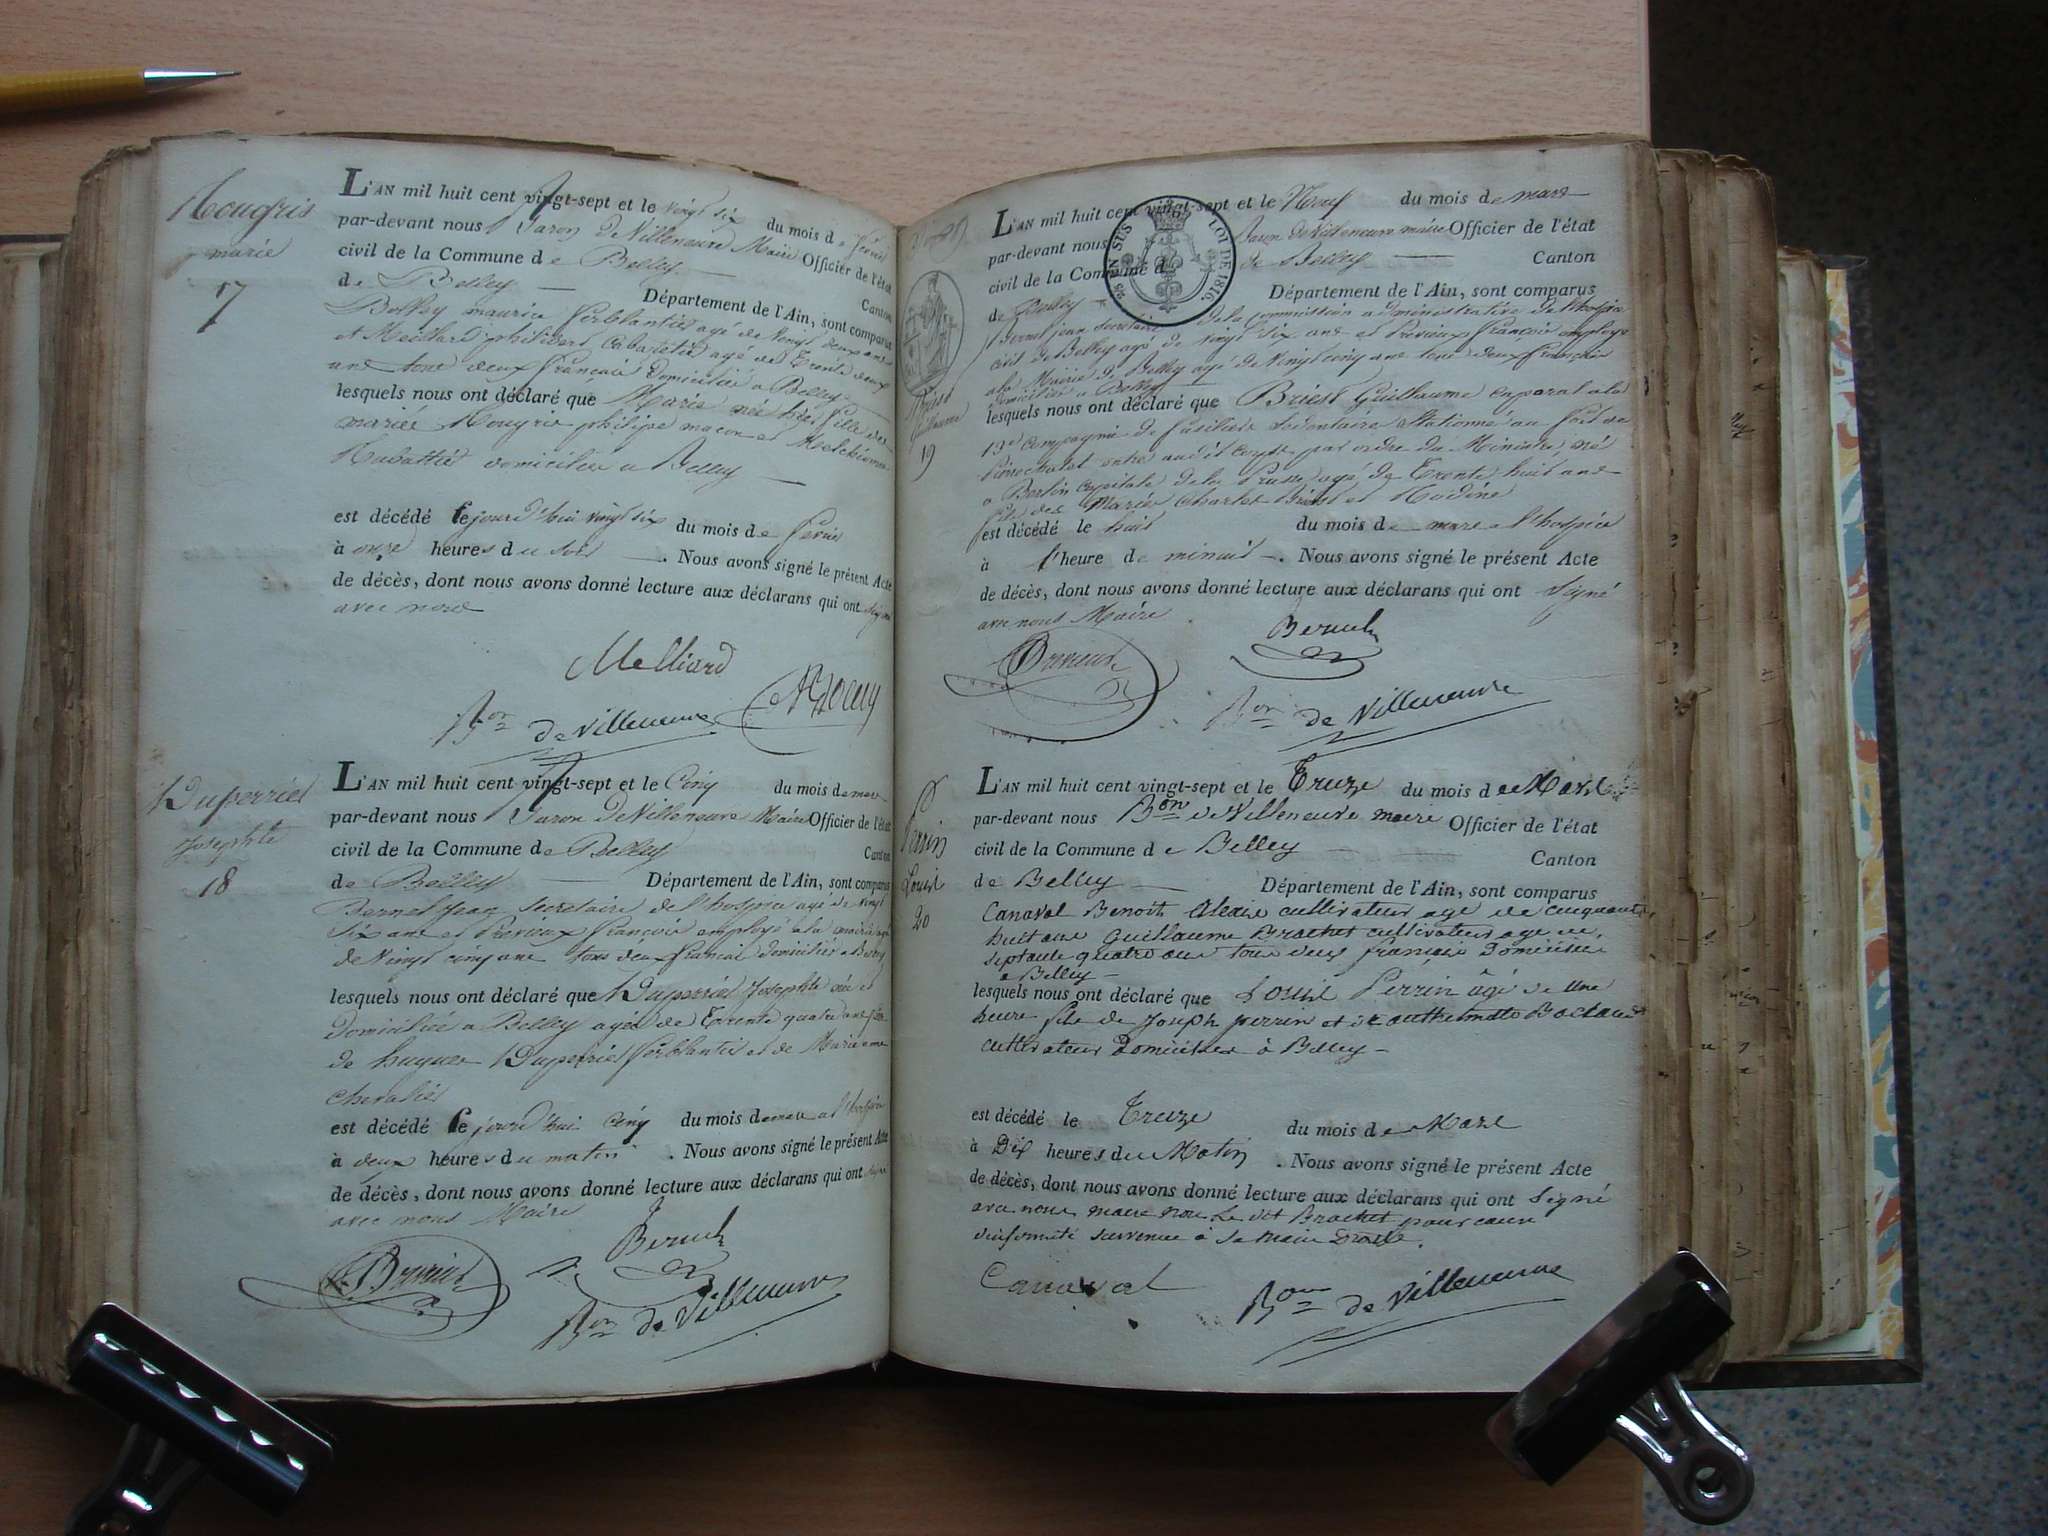 Mougris
marie
17
L'AN mil huit cent vingt-sept et le vingt six du mois de février
par-devant nous Baron De Villeneuve Maire Officier de l'état
civil de la Commune de Belley
Canton
de Belley Département de l'Ain, sont comparus
maurice ferblantier agé de vingt deux ans
et Meilliard philibert Cabaretier agé de Trente deux
ans tous deux francais Domiciliés a Belley
lesquels nous ont déclaré que Marie née hier fille des
mariés Mougris philipe maçon et
Rabattier domiciliés a Belley
est décédé le jourd'hui vingt six du mois de fevrier
à onze heures du soir . Nous avons signé le présent Acte
de décès, dont nous avons donné lecture aux déclarans qui ont signé
avec nous
Melliard
Bon de Villeneuve
Duperrier
Josephte
18
L'AN mil huit cent vingt-sept et le Cinq du mois de mars
par-devant nous Baron De Villeneuve Maire Officier de l'état
civil de la Commune de Belley
Canton
de Belley Département de l'Ain, sont comparus
Bernel Jean Secretaire de l'hospice agé de vingt
six ans et Previeux françois employé a la mairie agé
de Vingt cinq ans tous deux francais domiciliés a Belley
lesquels nous ont déclaré que Duperrier Josephte née et
Domiciliée a Belley agée de Trente quatre ans fille
de hugues Duperrier ferblantier et de Marie anne
chevalier
est décédé le jourd'hui cinq du mois de mars a l'hospice
à deux heures du matin . Nous avons signé le présent Acte
de décès, dont nous avons donné lecture aux déclarans qui ont signé
avec nous Maire
Bon de Villeneuve
Briest
Guillaume
19
25 EN SUS LOI DE 1816.
L'AN mil huit cent vingt-sept et le Neuf du mois de mars
par-devant nous Baron De Villeneuve maire Officier de l'état
civil de la Commune d de Belley
Canton
de Belley Département de l'Ain, sont comparus
Bernel jean Secretaire de la Commission administrative de l'hospice
civil de Belley agé de vingt six ans et Previeux françois employé
a la Mairie de Belley agé de Vingt cinq ans tous deux français
domiciliés a Belley
lesquels nous ont déclaré que Briest Guillaume caporal a la
13e Compagnie de fusiliers Sedentaire Stationné au fort de
Pierrechatel entré audit corps par ordre du Ministre, né
a Berlin Capitale de la Prusse agé de Trente huit ans
fils des Mariés Charles Briest et
est décédé le huit du mois de mars a l'hospice
à l'heure de minuit . Nous avons signé le présent Acte
de décès, dont nous avons donné lecture aux déclarans qui ont signé
avec nous Maire
Bon de Villeneuve
Perrin
Louis
20
L'AN mil huit cent vingt-sept et le Treize du mois de Mars
par-devant nous Bon de Villeneuve maire Officier de l'état
civil de la Commune de Belley
Canton
de Belley Département de l'Ain, sont comparus
Canaval Benoit Alexis cultivateur age de cinquante
huit ans Guillaume Brachet cultivateur age de
septante quatre ans tous deux français Domiciliés
a Belley
lesquels nous ont déclaré que Louis Perrin âgé de une
heure fils de Joseph perrin et de
cultivateurs Domiciliés à Belley
est décédé le Treize du mois de Mars
à Dix heures du Matin . Nous avons signé le présent Acte
de décès, dont nous avons donné lecture aux déclarans qui ont Signé
avec nous maire non Le dit Brachet pour cause
d'infirmité survenue à sa main Droite.
Canaval
Bon de Villeneuve